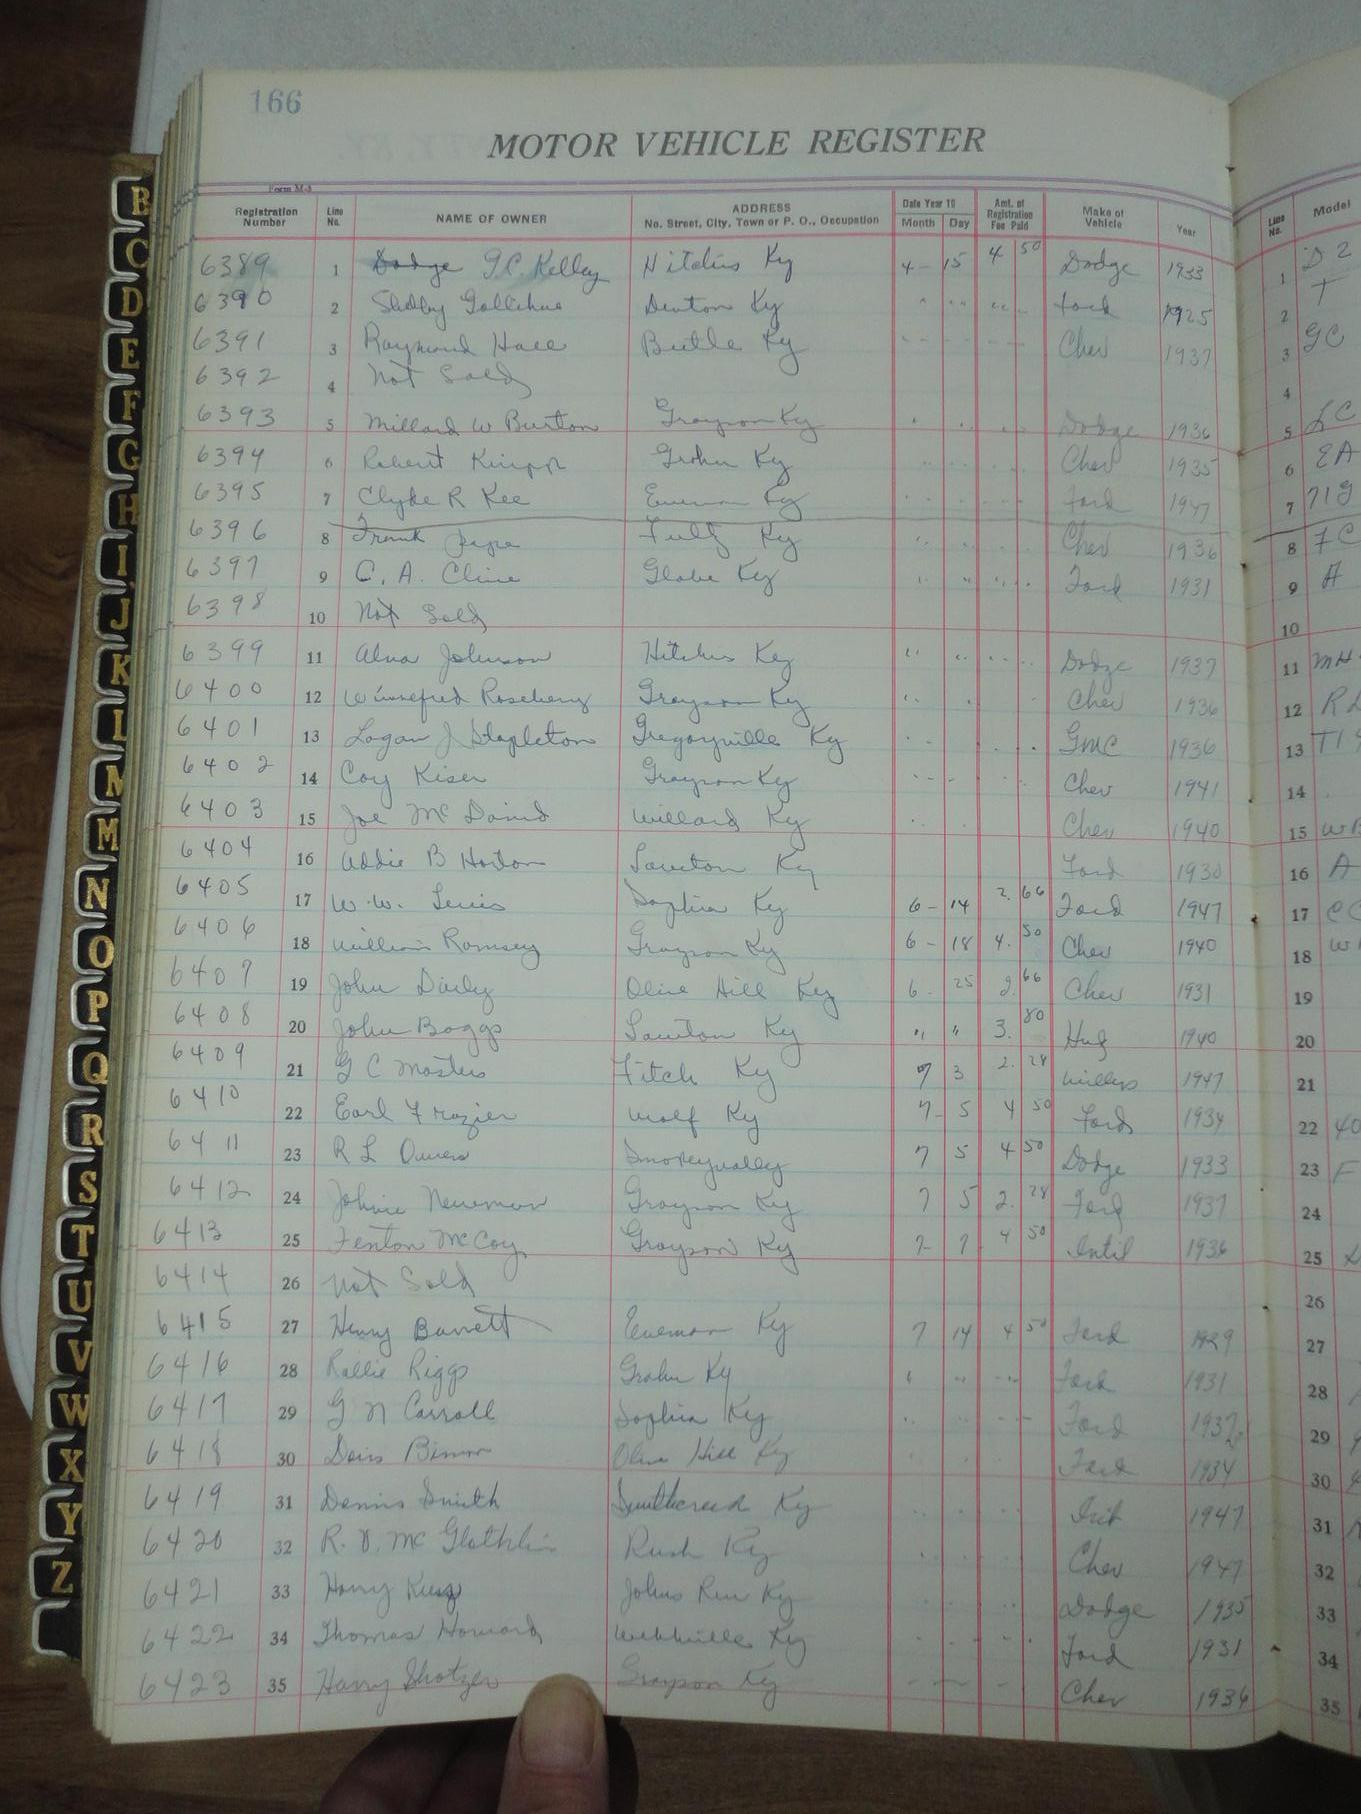 166
MOTOR VEHICLE REGISTER
Form M-3
Registration Number Line No. NAME OF OWNER ADDRESS No. Street, City, Town or P. O., Occupation Date Year 19 Month Day Amt. of Registration Fee Paid Make of Vehicle Year Line No. Model
6389 1 Dodge G.C. Kelley Hitchins Ky 4- 15 4 50 Dodge 1933 1 D2
6390 2 Shelby Gollihue Denton Ky " " " Ford 1925 2 T
6391 3 Raymond Hall Ky Chev 1937 3 GC
6392 4 Not Sold 4
6393 5 Millard W Burton Grayson Ky Dodge 1936 5
6394 6 Robert Grahn Ky Chev 1935 6 EA
6395 7 Clyde R Kee Eveman Ky Ford 1947 7 71G
6396 8 Frank Fultz Ky Chev 1936 8 FC
6397 9 C. A. Cline Globe Ky Ford 1931 9 A
6398 10 Not Sold 10
6399 11 Alva Johnson Hitchins Ky Dodge 1937 11 MH
6400 12 Winnefred Roseberry Grayson Ky Chev 1936 12
6401 13 Logan J Stapleton Gregoryville Ky GMC 1936 13 T1
6402 14 Coy Kiser Grayson Ky Chev 1941 14
6403 15 Joe McDavid Willard Ky Chev 1940 15
6404 16 Addie B Horton Lawton Ky Ford 1930 16 A
6405 17 W. W. Lewis Sophia Ky 6- 14 2. 66 Ford 1947 17
6406 18 William Ramsey Grayson Ky 6- 18 4. 50 Chev 1940 18
6407 19 John Olive Hill Ky 6- 25 2. 66 Chev 1931 19
6408 20 John Boggs Lawton Ky " " 3. 80 1940 20
6409 21 G C Masters Fitch Ky 7 3 2. 28 Willys 1947 21
6410 22 Earl Frazier Wolf Ky 7- 5 4 50 Ford 1934 22 40
6411 23 R L Owens Smokeyvalley 7 5 4 50 Dodge 1933 23 F
6412 24 Johnie Newman Grayson Ky 7 5 2. 28 Ford 1937 24
6413 25 Fenton McCoy Grayson Ky 7- 7 4 50 Intil 1936 25
6414 26 Not Sold 26
6415 27 Henry Barrett Eveman Ky 7 14 4 50 Ford 1929 27
6416 28 Rollie Riggs Grahn Ky Ford 1931 28
6417 29 G N Carroll Sophia Ky Ford 1937 29
6418 30 Olive Hill Ky Ford 1934 30
6419 31 Dennis Smith Ky 1947 31
6420 32 R. D. McGlothlin Rush Ky Chev 1947 32
6421 33 Johns Run Ky Dodge 1935 33
6422 34 Thomas Howard Webbville Ky Ford 1931 34
6423 35 Harry Shotzer Grayson Ky Chev 1936 35
B
C
D
E
F
G
H
I
J
K
L
M
M
N
O
P
Q
R
S
T
U
V
W
X
Y
Z